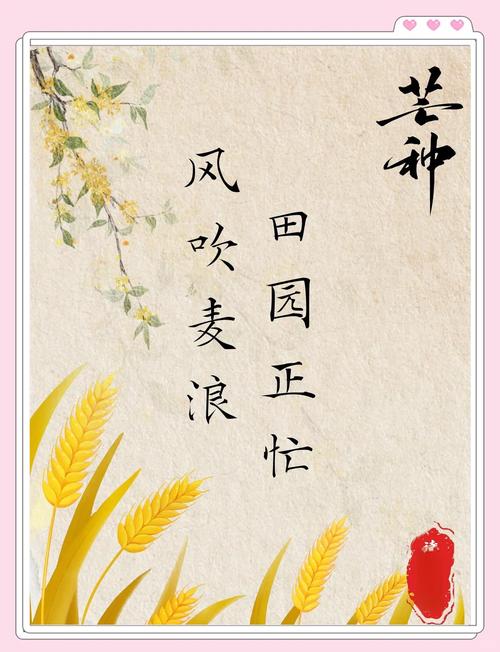 芒种
田园正忙
风吹麦浪